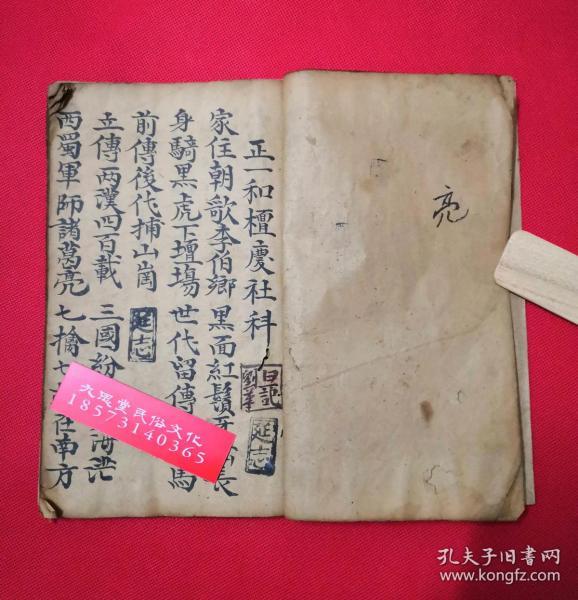 亮
正一和檀慶社科
家住朝歌李伯鄉 黑面紅鬚
長
身騎黑虎下壇場 世代留傳
馬
前傳後代捕山崗
立傳兩漢四百載 三國紛
茫
西蜀軍師諸葛亮 七擒七
在南方
日記
延志
延志
九思堂民俗文化
18573140365
孔夫子旧书网
www.kongfz.com